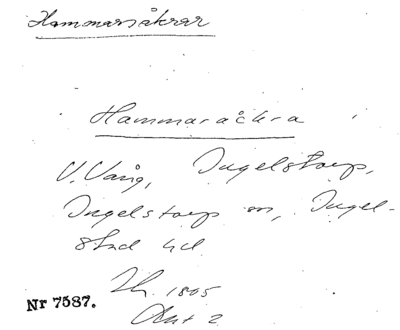 Hammarsåkrar
Hammaråckra
V. Vång, Ingelstorp,
Ingelstorp sn, Ingel-
stad hd
Sk. 1805
Akt 2
Nr 7587.